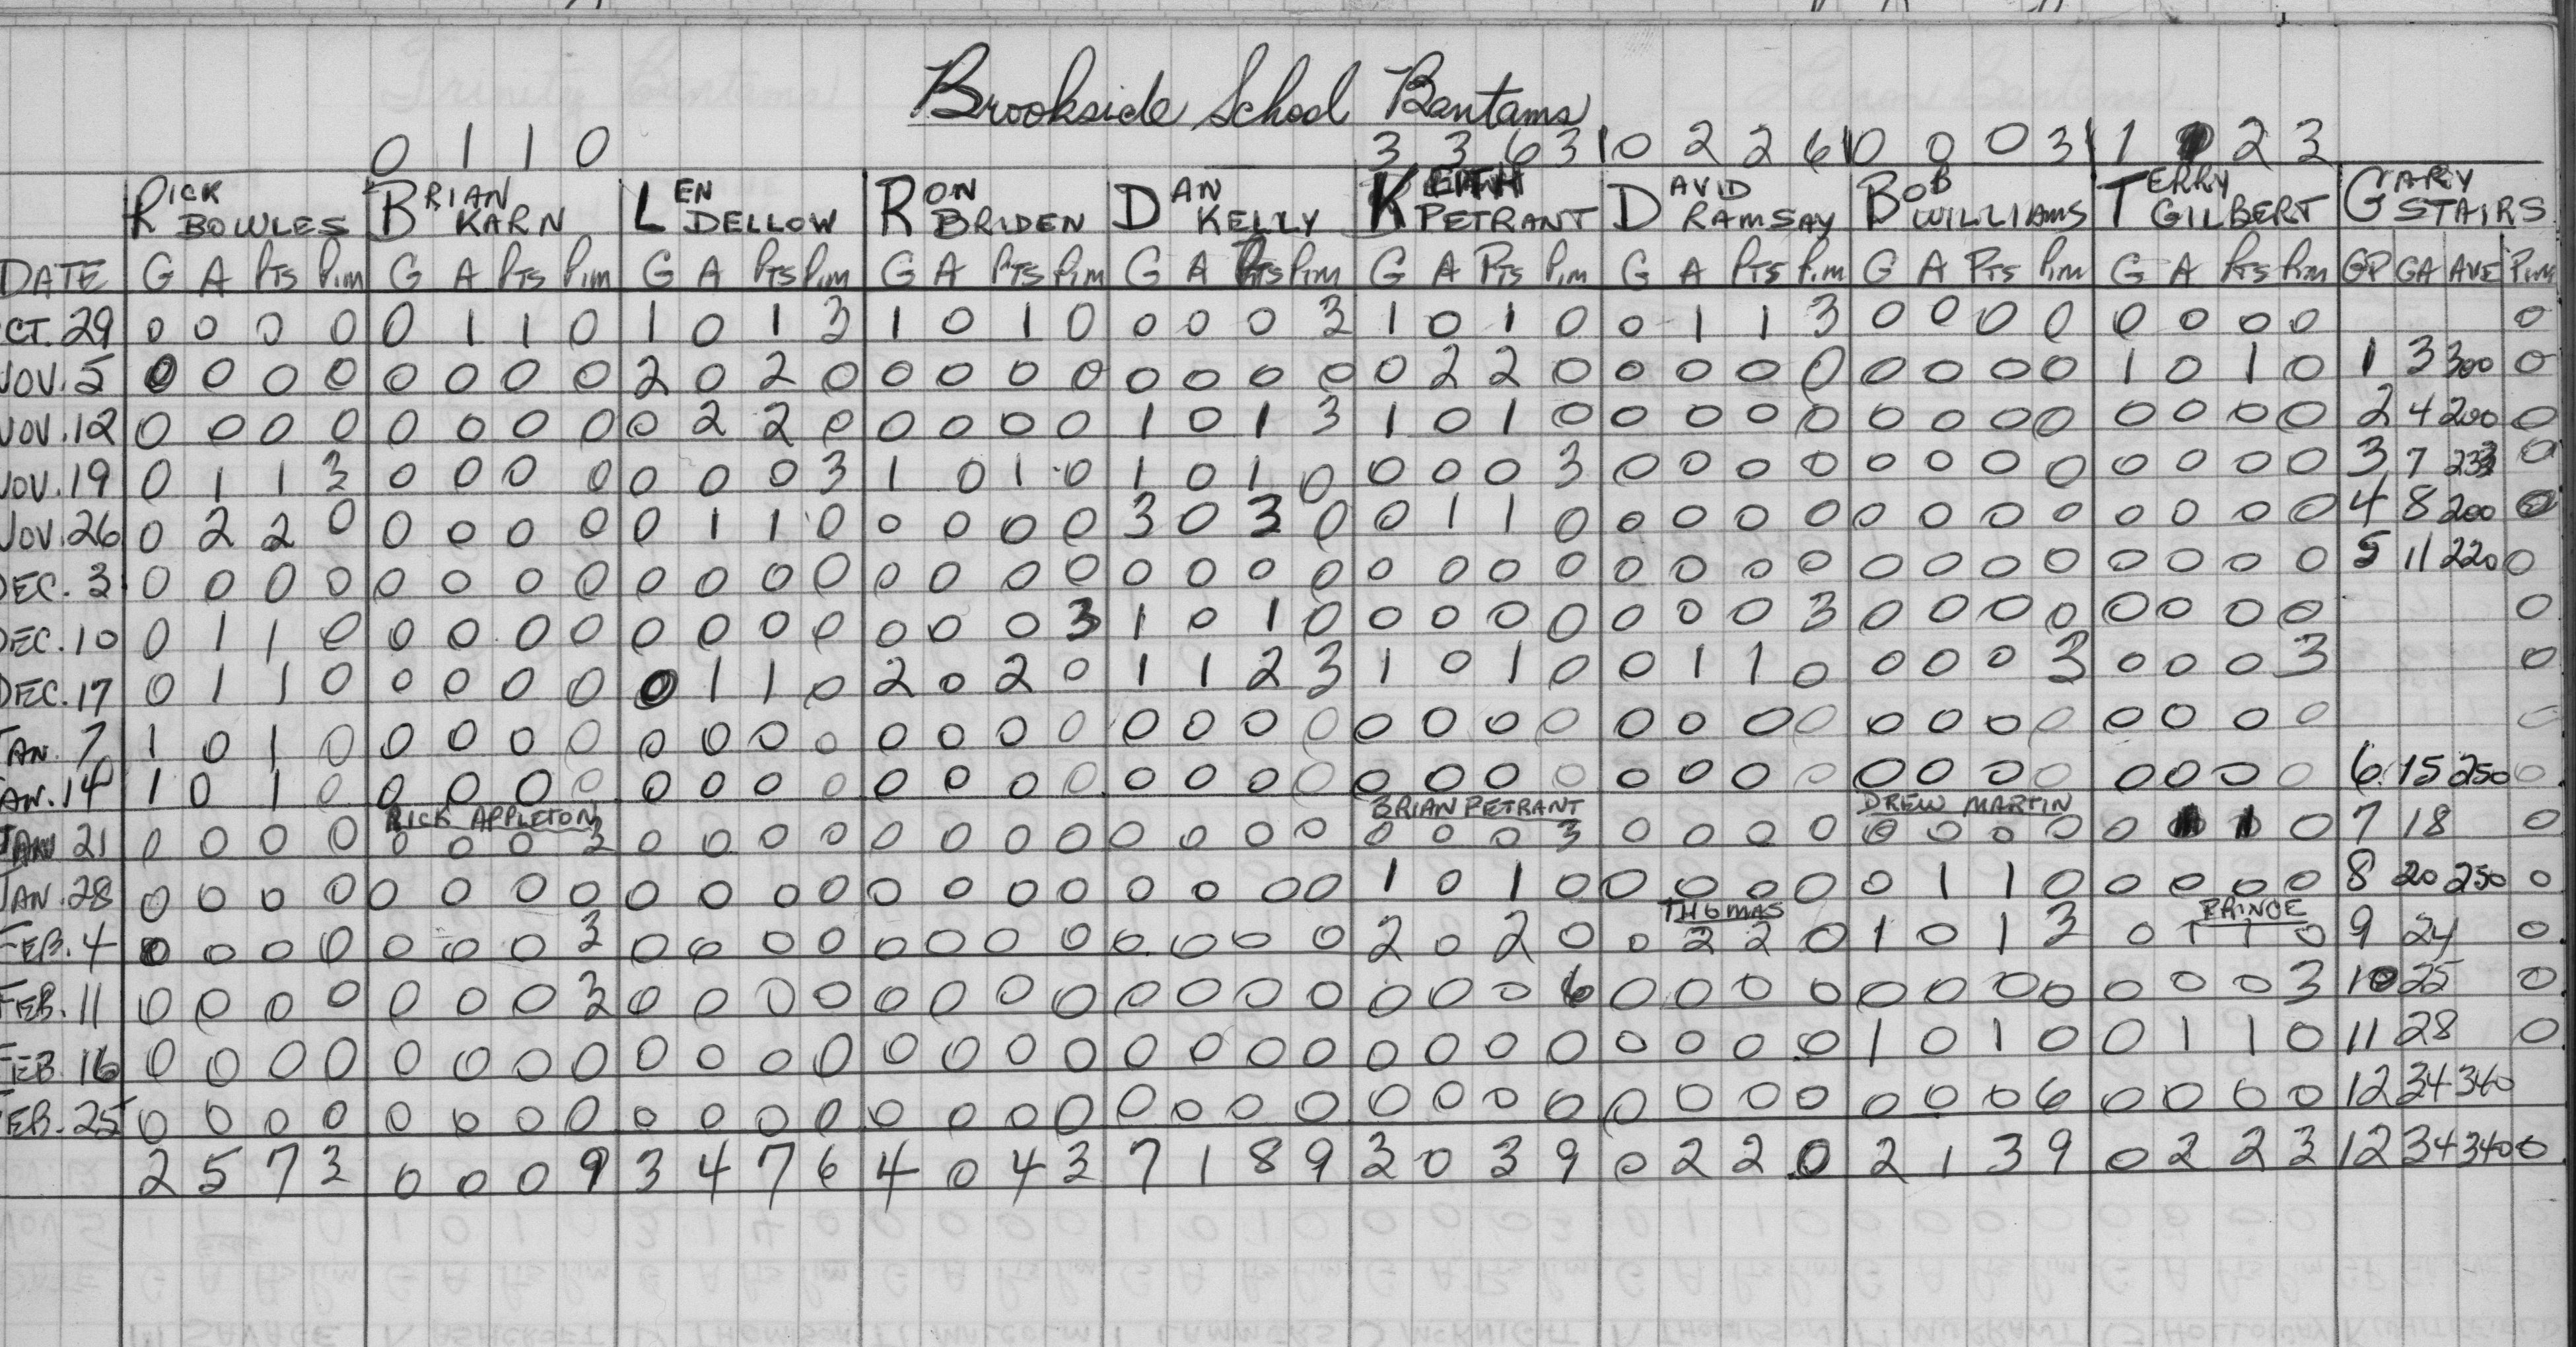 Brookside School Bantams
0 1 1 0 3 3 6 3 0 2 2 6 0 0 0 3 1 2 3
RICK BOWLES BRIAN KARN LEN DELLOW RON BRIDEN DAN KELLY KEITH PETRANT DAVID RAMSAY BOB WILLIAMS TERRY GILBERT GARY STAIRS
DATE G A PTS P.M G A PTS P.M G A PTS P.M G A PTS P.M G A PTS P.M G A PTS P.M G A PTS P.M G A PTS P.M G A PTS P.M GP GA AVE P.M
CT. 29 0 0 0 0 0 1 1 0 1 0 1 3 1 0 1 0 0 0 0 3 1 0 1 0 0 1 1 3 0 0 0 0 0 0 0 0 0
NOV. 5 0 0 0 0 0 0 0 0 2 0 2 0 0 0 0 0 0 0 0 0 0 2 2 0 0 0 0 0 0 0 0 0 1 0 1 0 1 3 300 0
NOV. 12 0 0 0 0 0 0 0 0 0 2 2 0 0 0 0 0 1 0 1 3 1 0 1 0 0 0 0 0 0 0 0 0 0 0 0 0 2 4 200 0
NOV. 19 0 1 1 3 0 0 0 0 0 0 0 3 1 0 1 0 1 0 1 0 0 0 0 3 0 0 0 0 0 0 0 0 0 0 0 0 3 7 233 0
NOV. 26 0 2 2 0 0 0 0 0 0 1 1 0 0 0 0 0 3 0 3 0 0 1 1 0 0 0 0 0 0 0 0 0 0 0 0 0 4 8 200 0
DEC. 3 0 0 0 0 0 0 0 0 0 0 0 0 0 0 0 0 0 0 0 0 0 0 0 0 0 0 0 0 0 0 0 0 0 0 0 0 5 11 220 0
DEC. 10 0 1 1 0 0 0 0 0 0 0 0 0 0 0 0 3 1 0 1 0 0 0 0 0 0 0 0 3 0 0 0 0 0 0 0 0 0
DEC. 17 0 1 1 0 0 0 0 0 0 1 1 0 2 0 2 0 1 1 2 3 1 0 1 0 0 1 1 0 0 0 0 3 0 0 0 3 0
JAN. 7 1 0 1 0 0 0 0 0 0 0 0 0 0 0 0 0 0 0 0 0 0 0 0 0 0 0 0 0 0 0 0 0 0 0 0 0 0
AN. 14 1 0 1 0 0 0 0 0 0 0 0 0 0 0 0 0 0 0 0 0 0 0 0 0 0 0 0 0 0 0 0 0 0 0 0 0 6 15 250 0
RICK APPLETON BRIAN PETRANT DREW MARTIN
JAN 21 0 0 0 0 0 0 0 3 0 0 0 0 0 0 0 0 0 0 0 0 0 0 0 3 0 0 0 0 0 0 0 0 0 1 1 0 7 18 0
JAN. 28 0 0 0 0 0 0 0 0 0 0 0 0 0 0 0 0 0 0 0 0 1 0 1 0 0 0 0 0 0 1 1 0 0 0 0 0 8 20 250 0
THOMAS PRINCE
FEB. 4 0 0 0 0 0 0 0 3 0 0 0 0 0 0 0 0 0 0 0 0 2 0 2 0 0 2 2 0 1 0 1 3 0 1 1 0 9 24 0
FEB. 11 0 0 0 0 0 0 0 3 0 0 0 0 0 0 0 0 0 0 0 0 0 0 0 6 0 0 0 0 0 0 0 0 0 0 0 3 10 25 0
FEB 16 0 0 0 0 0 0 0 0 0 0 0 0 0 0 0 0 0 0 0 0 0 0 0 0 0 0 0 0 1 0 1 0 0 1 1 0 11 28 0
FEB. 25 0 0 0 0 0 0 0 0 0 0 0 0 0 0 0 0 0 0 0 0 0 0 0 0 0 0 0 0 0 0 0 6 0 0 0 0 12 34 340
2 5 7 3 0 0 0 9 3 4 7 6 4 0 4 3 7 1 8 9 3 0 3 9 0 2 2 0 2 1 3 9 0 2 2 3 12 34 340 0